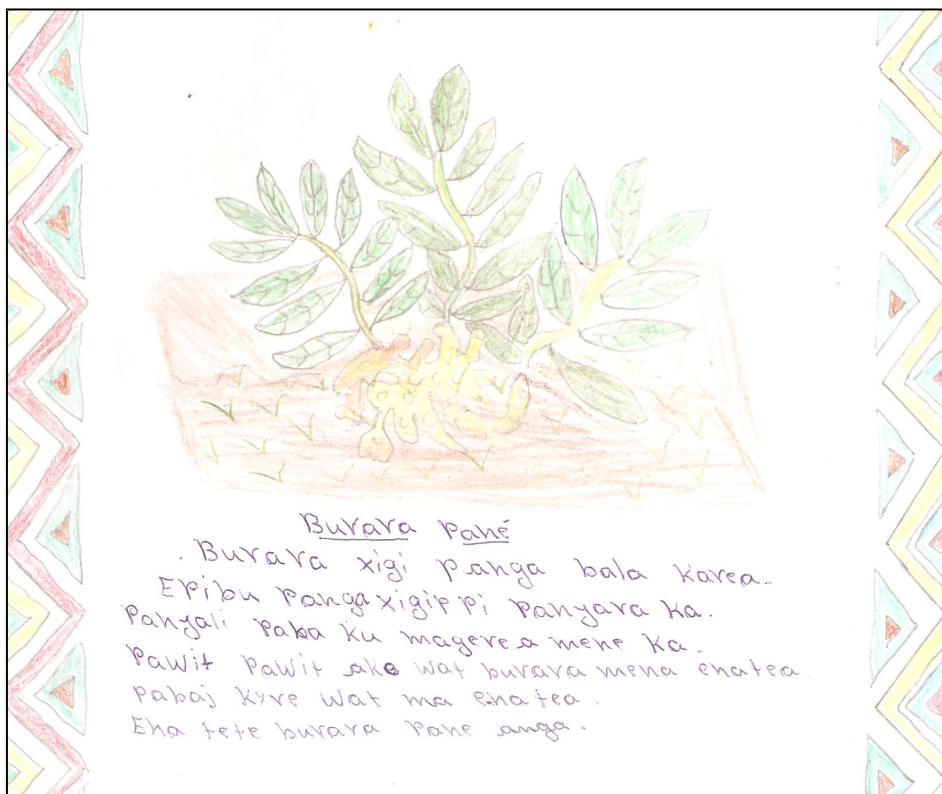 Burara Pané
. Burara xigi panga bala karea.
Epibu panga xigip pi panyara ka.
Panyali paba ku magerea mene ka.
Pawit pawit ake wat burara mena enatea.
Pabaj kyre wat ma enatea.
Ena tete burara pane anga.